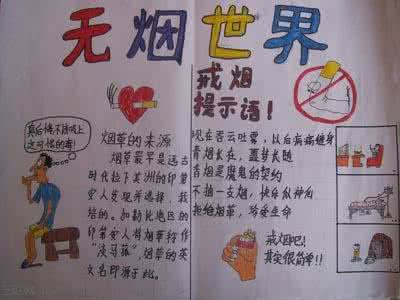 无烟世界
戒烟
提示语!
真后悔不该吸上
这可恨的毒!
烟草的来源
烟草最早是远古
时代拉丁美洲的印第
安人发现并选择、栽
培的。加勒比地区的
印第安人将烟草称作
烟草的英
文名即源于此。
现在吞云吐雾,以后病痛缠身
青烟长在,噩梦长随
香烟是魔鬼的契约
不抽一支烟,快乐似神仙
拒绝烟草,珍爱生命
戒烟吧!
其实很简单!!